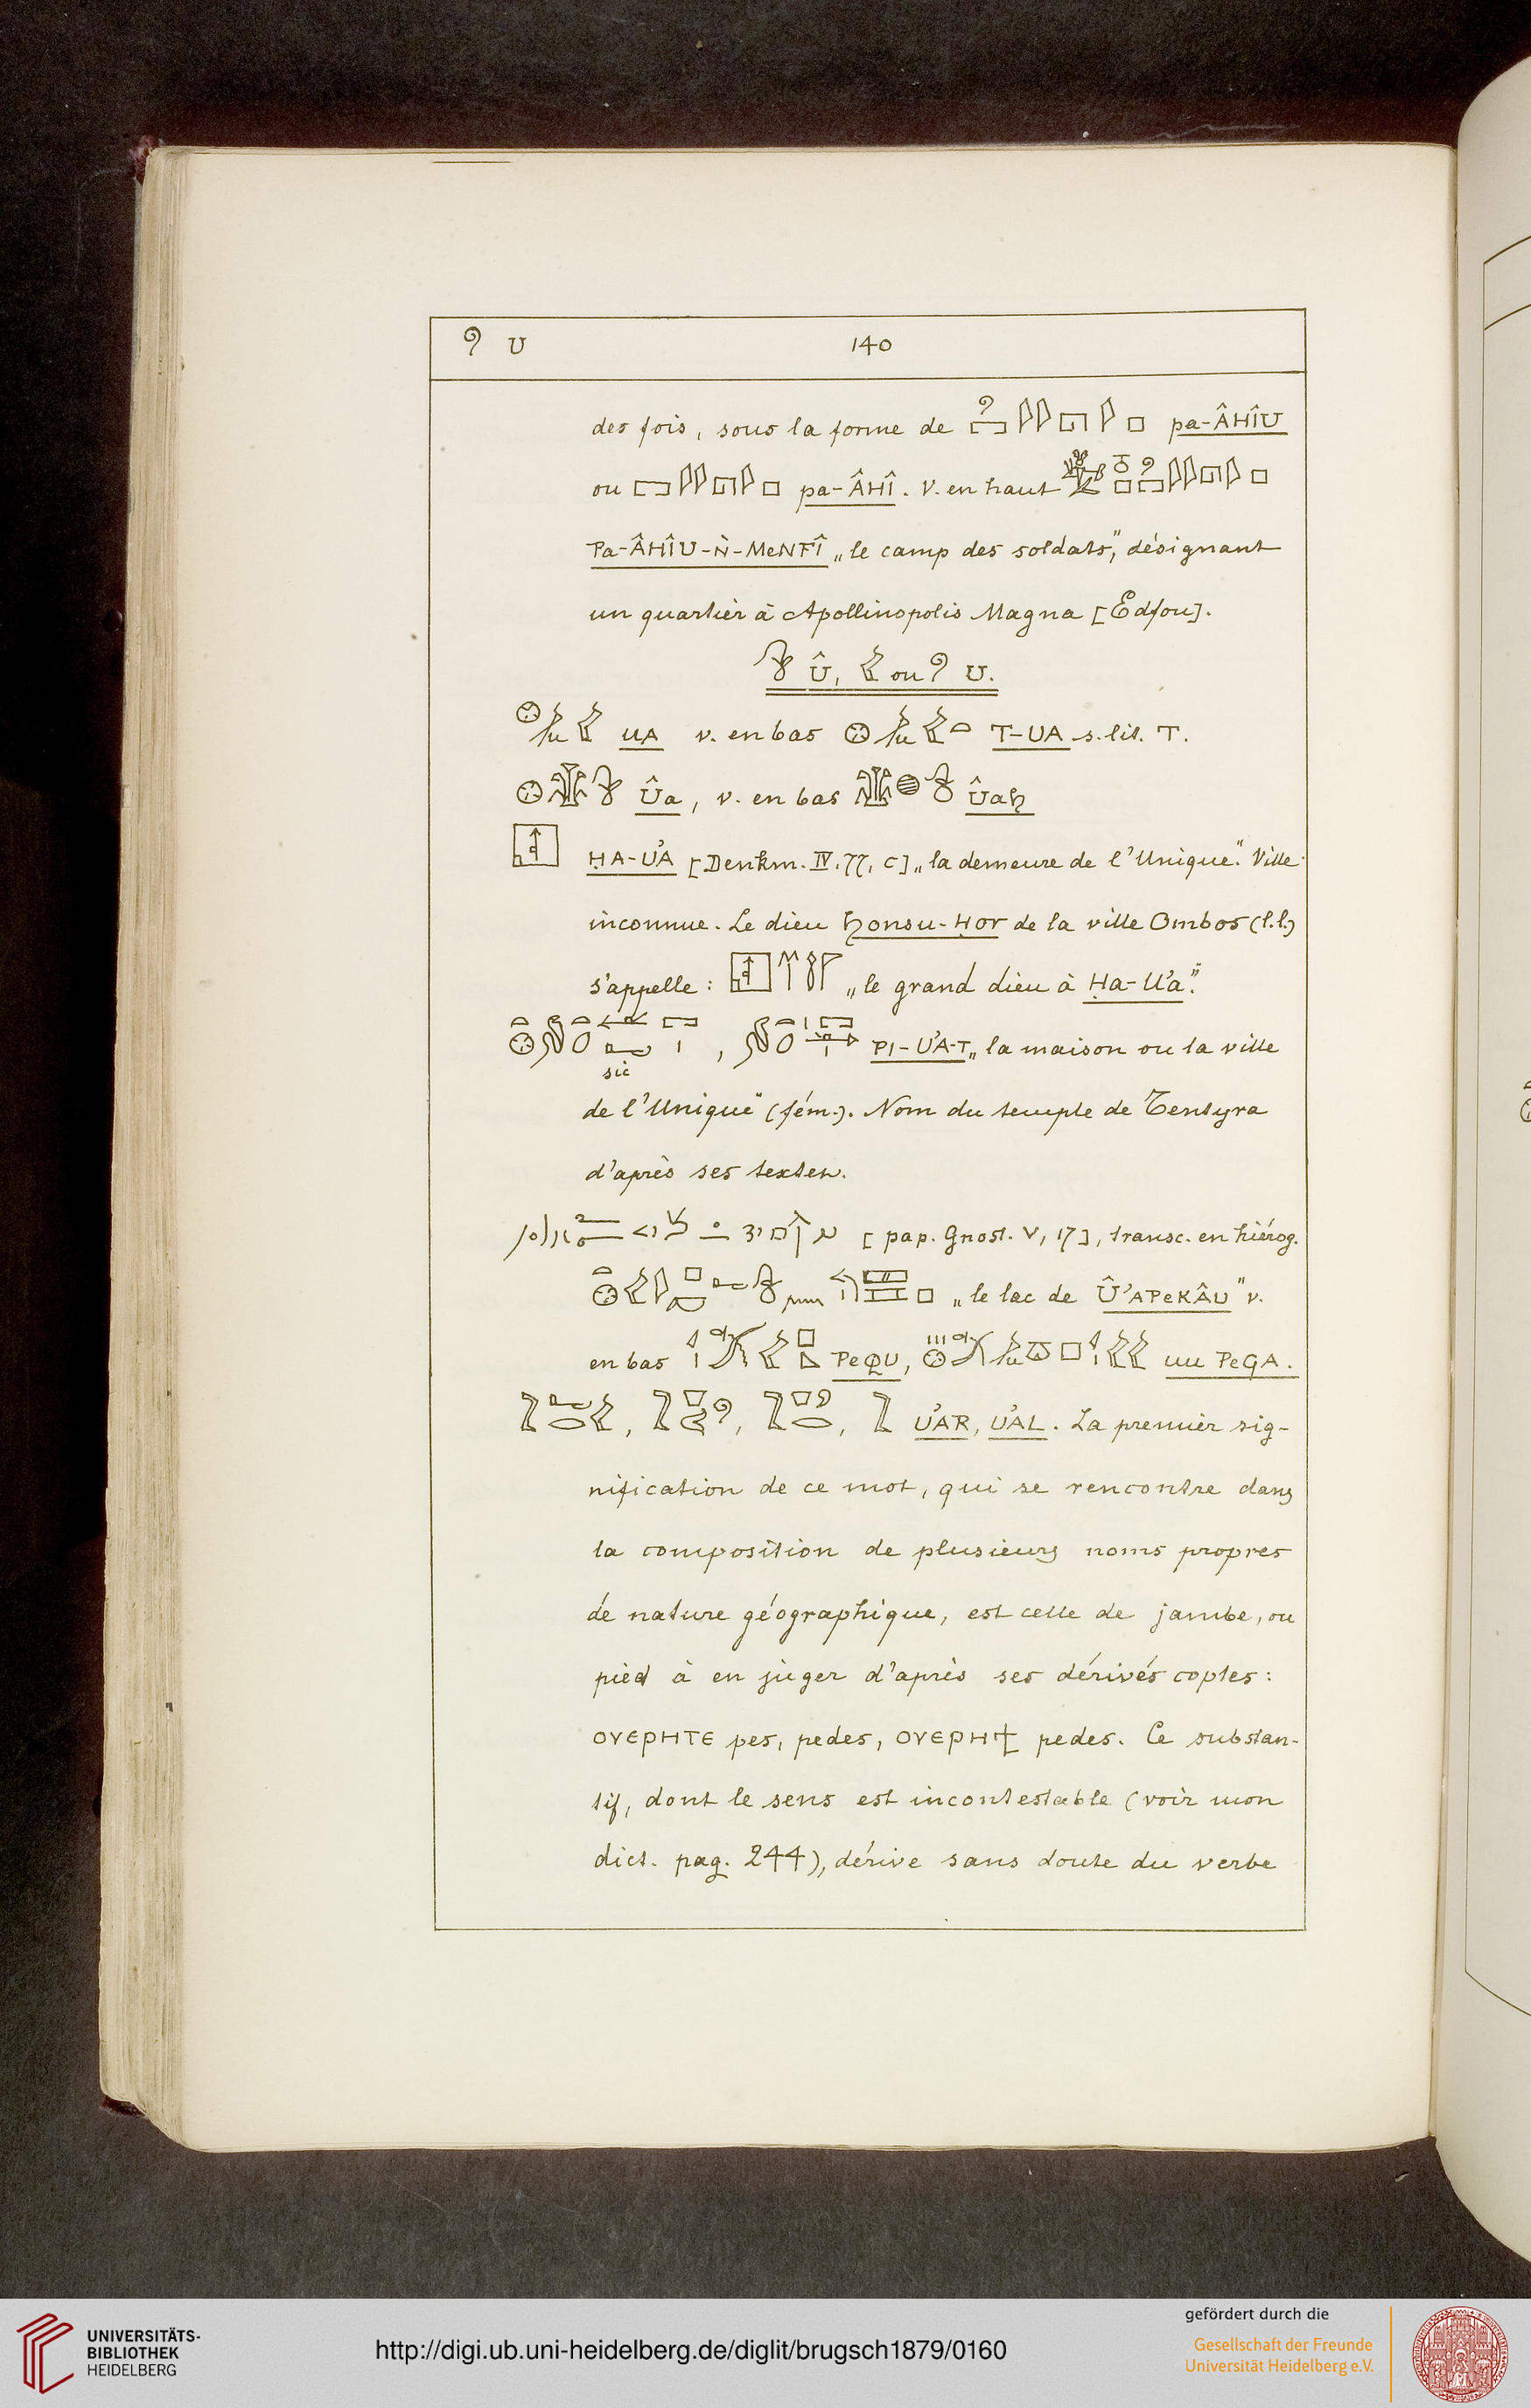 U 140
des fois, sous la forme de pa-ÂHÎU
ou pa-ÂHÎ. V. en haut
Pa-ÂHÎU-Ǹ-MeNFÎ „le camp des soldats", désignant
un quartier à Apollinopolis Magna [Edfou].
Û, ou U.
UA v. en bas T-UA s. lit. T.
Ûa, v. en bas Ûaḫ
ḤA-U'A [Denkm. IV, 77, c] „la demeure de l'Unique". Ville
inconnue. Le dieu ḫonsu-Ḥor de la ville Ombos (l.l.)
s'appelle: „le grand dieu à Ḥa-U'a".
, PI-U'A-T „la maison ou la ville
sic
de l'Unique" (fém.). Nom du temple de Tentyra
d'après ses textes.
[pap. Gnost. V, 17], transc. en hiérog.
„le lac de Û'APeKÂU" v.
en bas PeQU, uu PeGA.
, , , U'AR, U'AL. La premièr sig-
nification de ce mot, qui se rencontre dans
la composition de plusieurs noms propres
de nature géographique, est celle de jambe, ou
pied à en juger d'après ses dérivés coptes:
ⲟⲩⲉⲣⲏⲧⲉ pes, pedes, ⲟⲩⲉⲣⲏϯ pedes. Ce substan-
tif, dont le sens est incontestable (voir mon
dict. pag. 244), dérive sans doute du verbe
UNIVERSITÄTS-
BIBLIOTHEK
HEIDELBERG
http://digi.ub.uni-heidelberg.de/diglit/brugsch1879/0160
gefördert durch die
Gesellschaft der Freunde
Universität Heidelberg e.V.